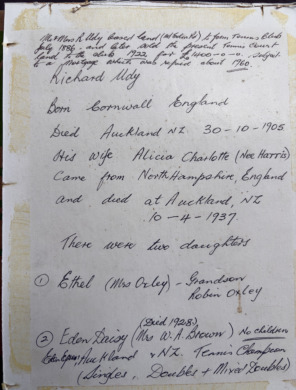 Mr & Mrs R. Udy leased land (at back) to Tennis Club
July 1886, and later sold the present Tennis Court
land to the club 1922 for £1400-0-0. Subject
to a Mortgage which was repaid about 1960.
Richard Udy
Born Cornwall England
Died Auckland NZ 30-10-1905
His Wife Alicia Charlotte (Nee Harris)
Came from NorthHampshire, England
and died at Auckland, NZ
10-4-1937.
There were two daughters
① Ethel (Mrs Oxley) - Grandson
Robin Oxley
(Died 1928)
② Eden Daisy (Mrs W. A. Brown) No children
Auckland & NZ Tennis Champion
(Singles, Doubles + Mixed Doubles)